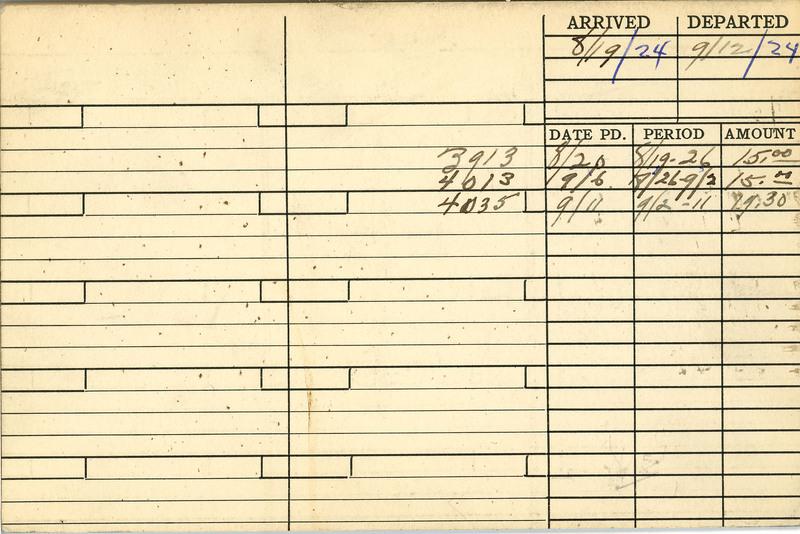 ARRIVED DEPARTED
8/19/24 9/12/24
DATE PD. PERIOD AMOUNT
3913 8/20 8/19-26 15.00
4013 9/6. 8/26-9/2 15.00
4035 9/11 9/2-11 19.30